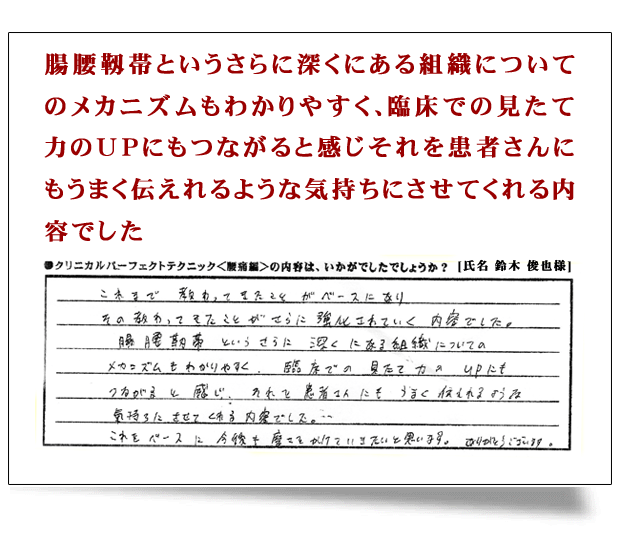 腸腰靱帯というさらに深くにある組織について
のメカニズムもわかりやすく、臨床での見たて
力のUPにもつながると感じそれを患者さんに
もうまく伝えれるような気持ちにさせてくれる内
容でした
●クリニカルパーフェクトテクニック＜腰痛編＞の内容は、いかがでしたでしょうか？ [氏名 鈴木 俊也様]
これまで 教わってきたこと がベースになり
その教わってきたことがさらに 強化されていく 内容でした。
腸腰靱帯 というさらに 深くにある組織についての
メカニズムもわかりやすく、臨床での 見たて力の UPにも
つながると 感じ、それを患者さんにも うまく伝えれるような
気持ちにさせてくれる内容でした。
これをベースに 今後も 磨きをかけていきたいと思います。ありがとうございます。